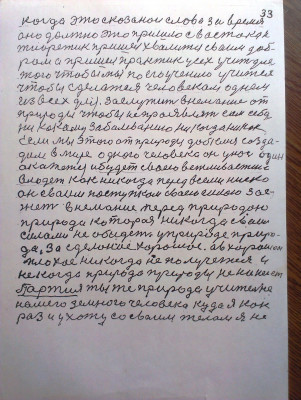 33
когда это сказаное слово за время
оно должно это пришло с востока как
теоретик пришел хвалится своим доб
ром а пришел практик усех учит для
того чтобы мы по его учению учится
чтобы сделатся человеком одним
из всех заслужить внемание от
природы чтобы не проявлять сам себя
ни какому заболеванию ни
если мы этого от природы добемся созда
дим в мире одного человека он у нас один
окажется и будет своею
как никогда перед всеми нико
он своим поступком своею силою зас
жет внемание перед природою
природа которая никогда своими
силами не обидеть у природе приро
да, за сделоное хорошое. а в хорошом
плохое никогда не получется и
некогда природа природу не накажет
Партия ты же природа учителя
нашего земного человека куда я как
раз и ухожу со своим телом я не